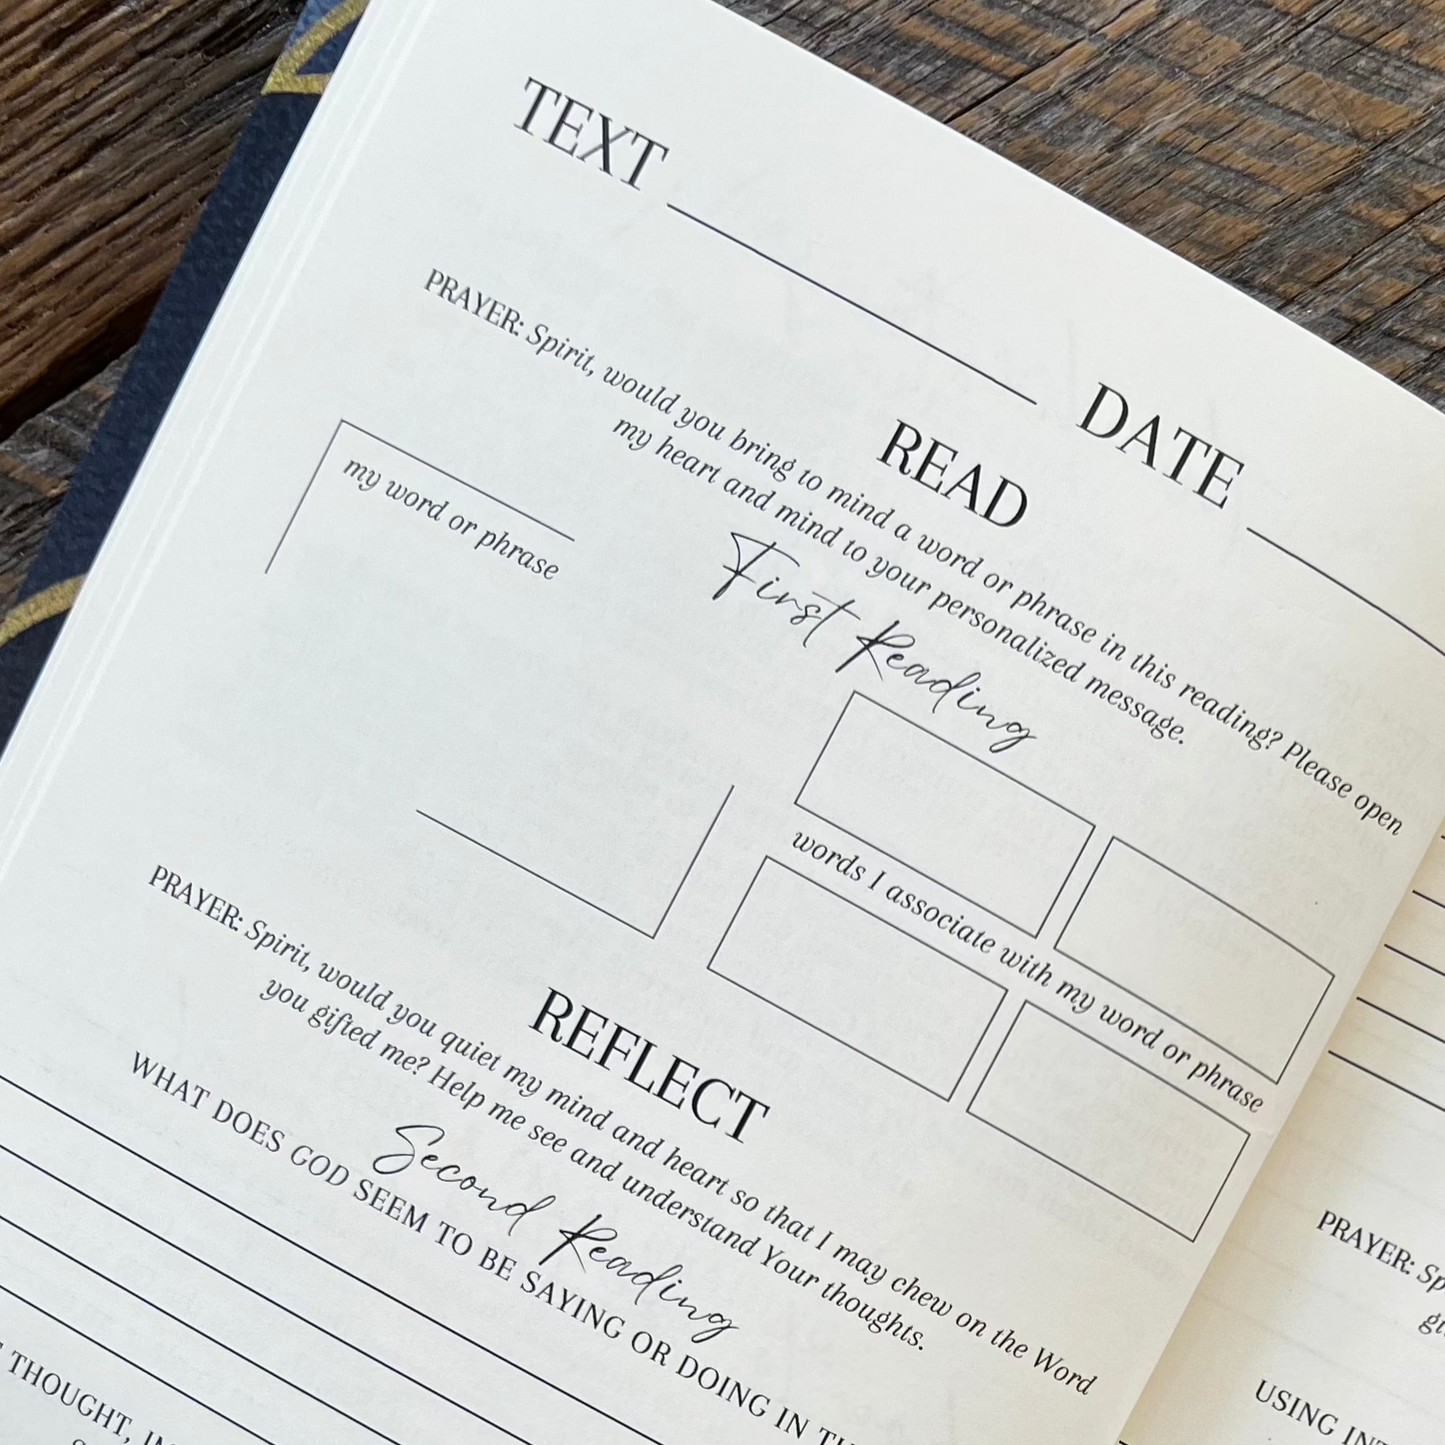 TEXT DATE
READ
PRAYER: Spirit, would you bring to mind a word or phrase in this reading? Please open
my heart and mind to your personalized message.
First Reading
my word or phrase
words I associate with my word or phrase
REFLECT
PRAYER: Spirit, would you quiet my mind and heart so that I may chew on the Word
you gifted me? Help me see and understand Your thoughts.
Second Reading
WHAT DOES GOD SEEM TO BE SAYING OR DOING IN
THOUGHT,
PRAYER:
USING